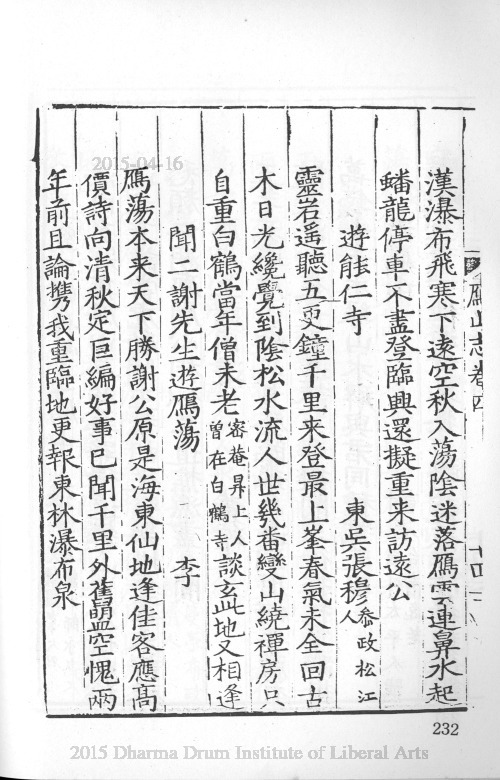 2015-04-16
漢瀑布飛寒下遠空秋入蕩陰迷落鴈雲連鼻水起
蟠龍停車不盡登臨興還擬重来訪遠公
遊能仁寺　東吳張穆叅政松江人
靈岩遥聽五更鐘千里来登最上峯春氣未全回古
木日光纔覺到陰松水流人世幾畨變山繞禪房只
自重白鶴當年僧未老密菴昇上人曾在白鶴寺談玄此地又相逢
聞二謝先生遊鴈蕩　李
鴈蕩本来天下勝謝公原是海東仙地逢佳客應髙
價詩向清秋定巨編好事已聞千里外舊朙空愧兩
年前且論携我重臨地更報東林瀑布泉
鴈山志卷四
十四
232
2015 Dharma Drum Institute of Liberal Arts